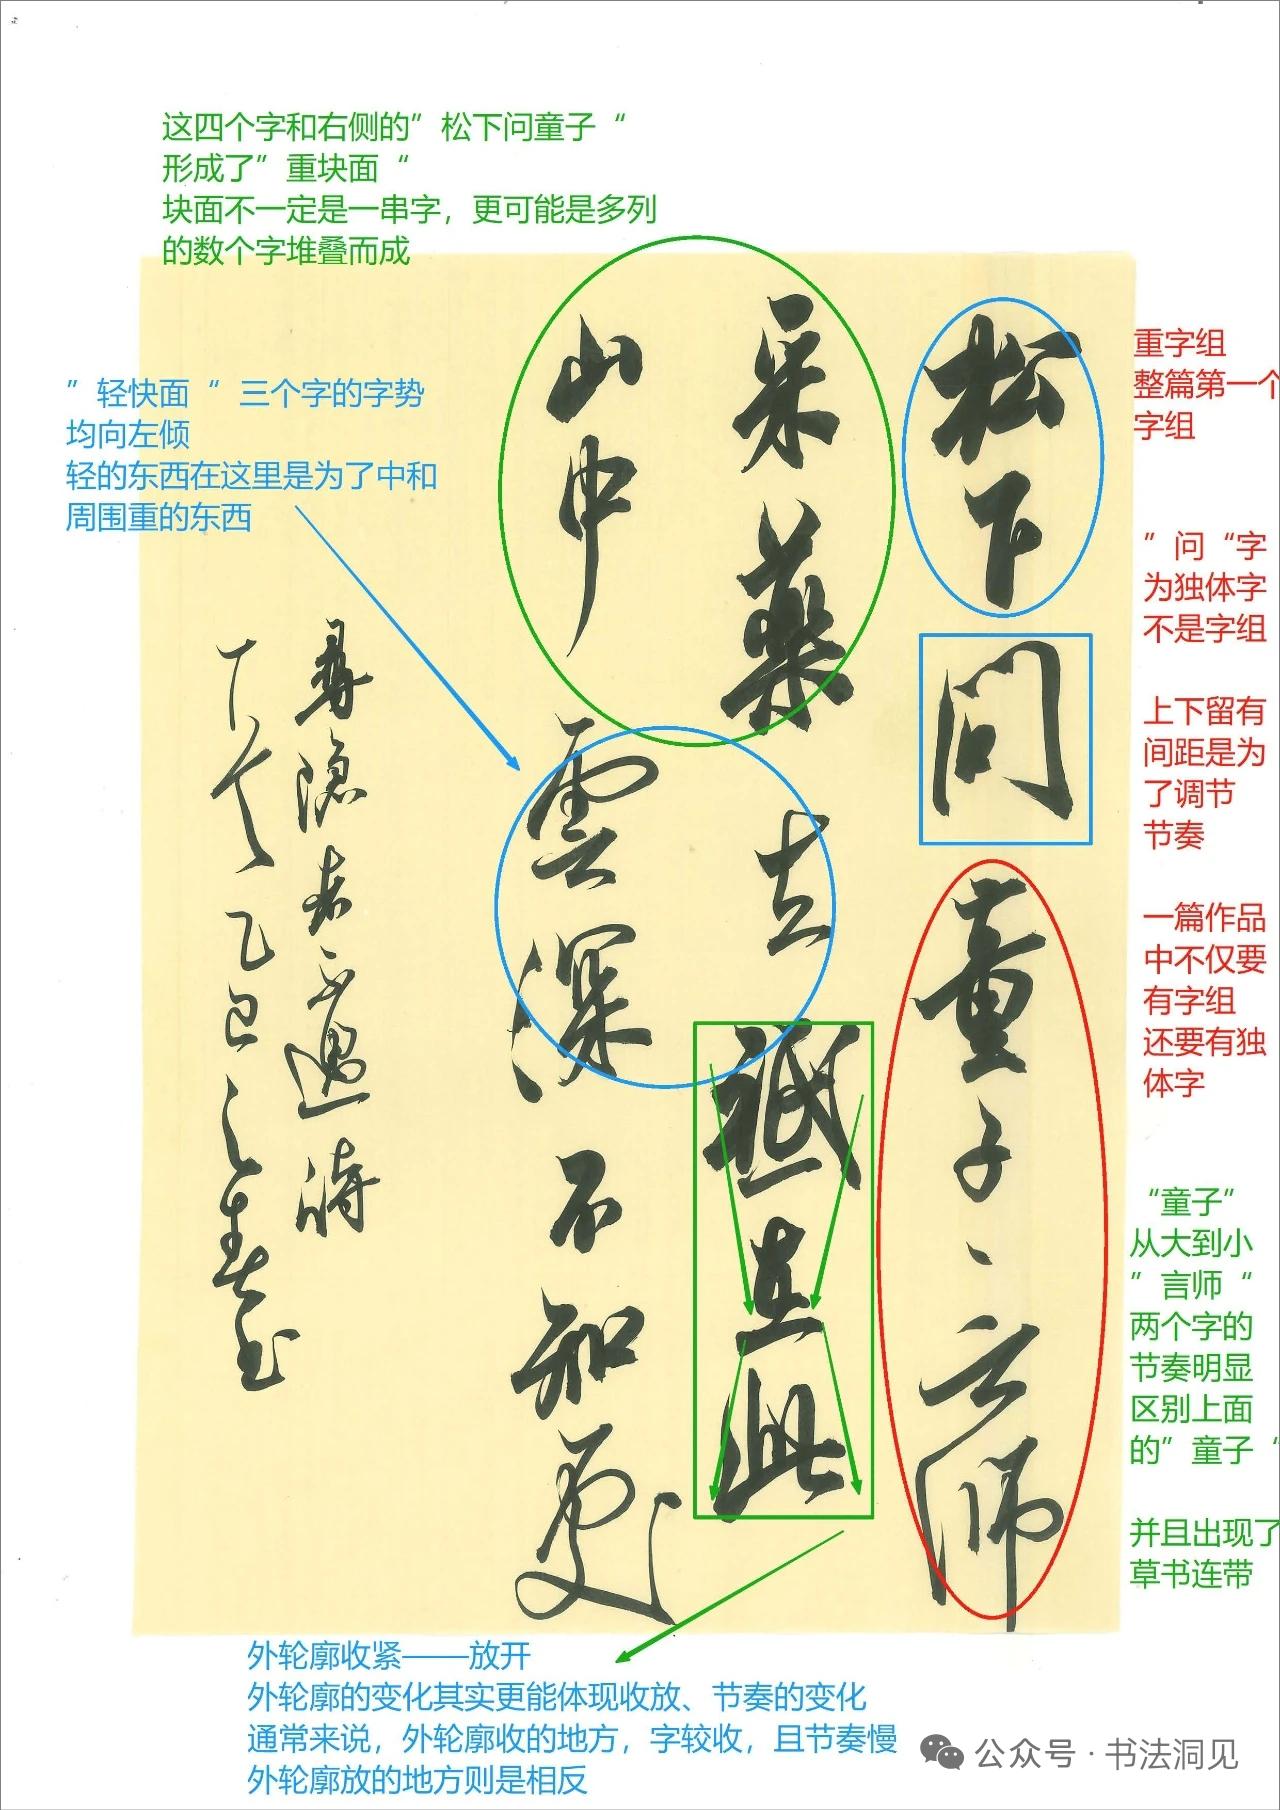 这四个字和右侧的”松下问童子“
形成了”重块面“
块面不一定是一串字，更可能是多列
的数个字堆叠而成
”轻快面“三个字的字势
均向左倾
轻的东西在这里是为了中和
周围重的东西
重字组
整篇第一个
字组
”问“字
为独体字
不是字组
上下留有
间距是为
了调节
节奏
一篇作品
中不仅要
有字组
还要有独
体字
“童子”
从大到小
”言师“
两个字的
节奏明显
区别上面
的”童子“
并且出现了
草书连带
松下問童子言師
采藥去祗在此
山中雲深不知處
尋隱者不遇詩
乙巳之春
外轮廓收紧——放开
外轮廓的变化其实更能体现收放、节奏的变化
通常来说，外轮廓收的地方，字较收，且节奏慢
外轮廓放的地方则是相反
公众号·书法洞见